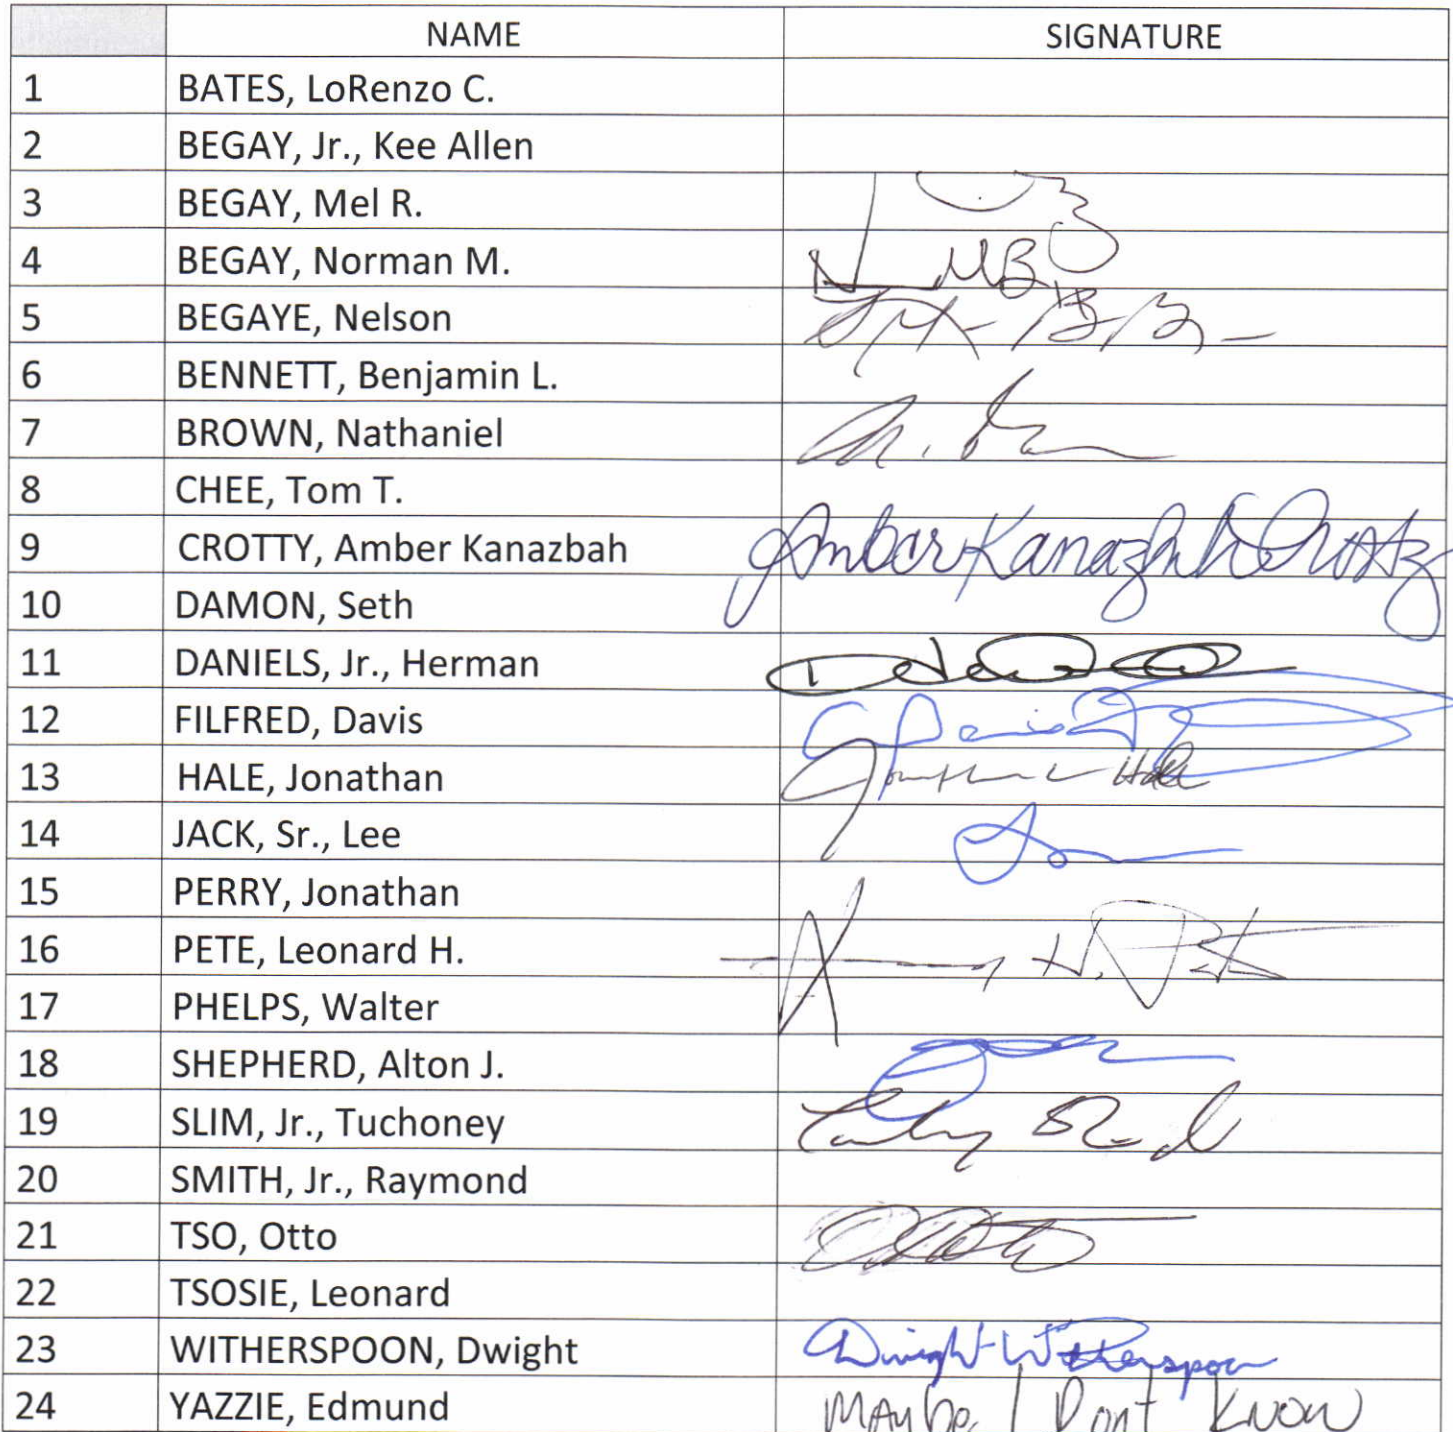 NAME SIGNATURE
1 BATES, LoRenzo C.
2 BEGAY, Jr., Kee Allen
3 BEGAY, Mel R.
4 BEGAY, Norman M. N MB
5 BEGAYE, Nelson
6 BENNETT, Benjamin L.
7 BROWN, Nathaniel
8 CHEE, Tom T.
9 CROTTY, Amber Kanazbah Amber Kanazbah Crotty
10 DAMON, Seth
11 DANIELS, Jr., Herman
12 FILFRED, Davis Davis
13 HALE, Jonathan Jonathan Hale
14 JACK, Sr., Lee
15 PERRY, Jonathan
16 PETE, Leonard H. H. Pete
17 PHELPS, Walter
18 SHEPHERD, Alton J.
19 SLIM, Jr., Tuchoney
20 SMITH, Jr., Raymond
21 TSO, Otto
22 TSOSIE, Leonard
23 WITHERSPOON, Dwight Dwight Witherspoon
24 YAZZIE, Edmund Maybe I Dont Know